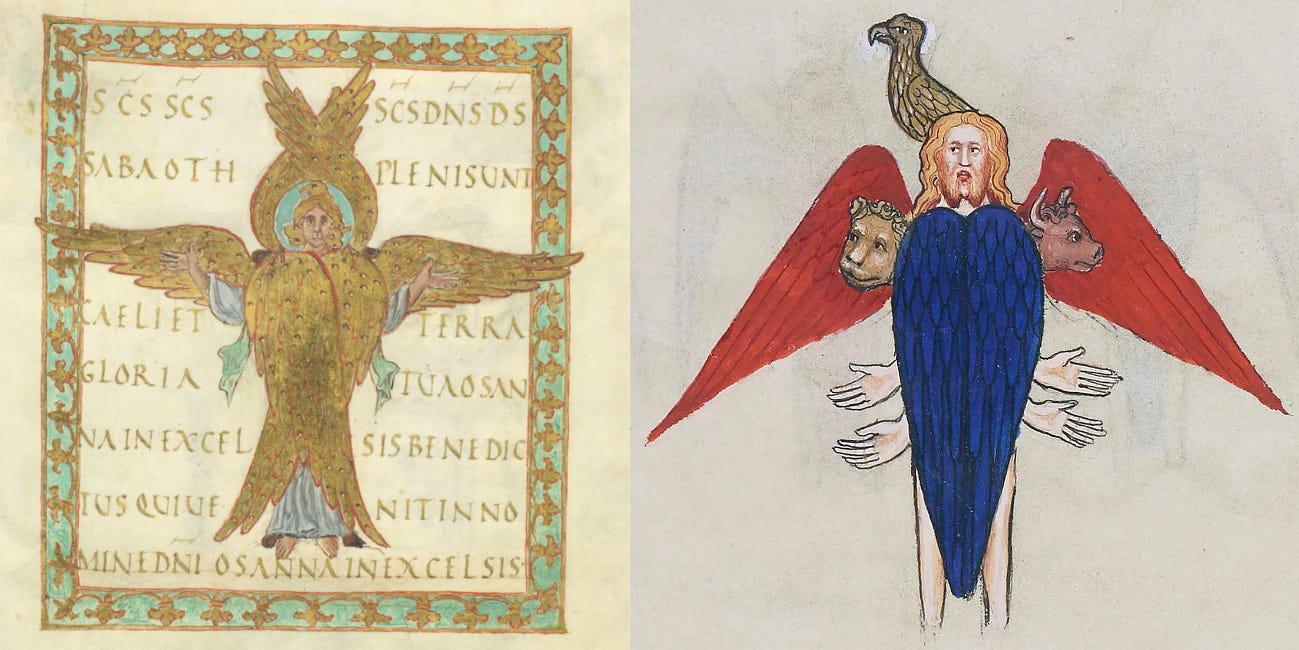 SCS SCS SCS DNS DS
SABAOTH PLENISUNT
CAELI ET TERRA
GLORIA TUA OSAN
NA IN EXCEL SIS BENEDIC
TUS QUIUE NIT IN NO
MINE DNI OSANNA IN EXCELSIS